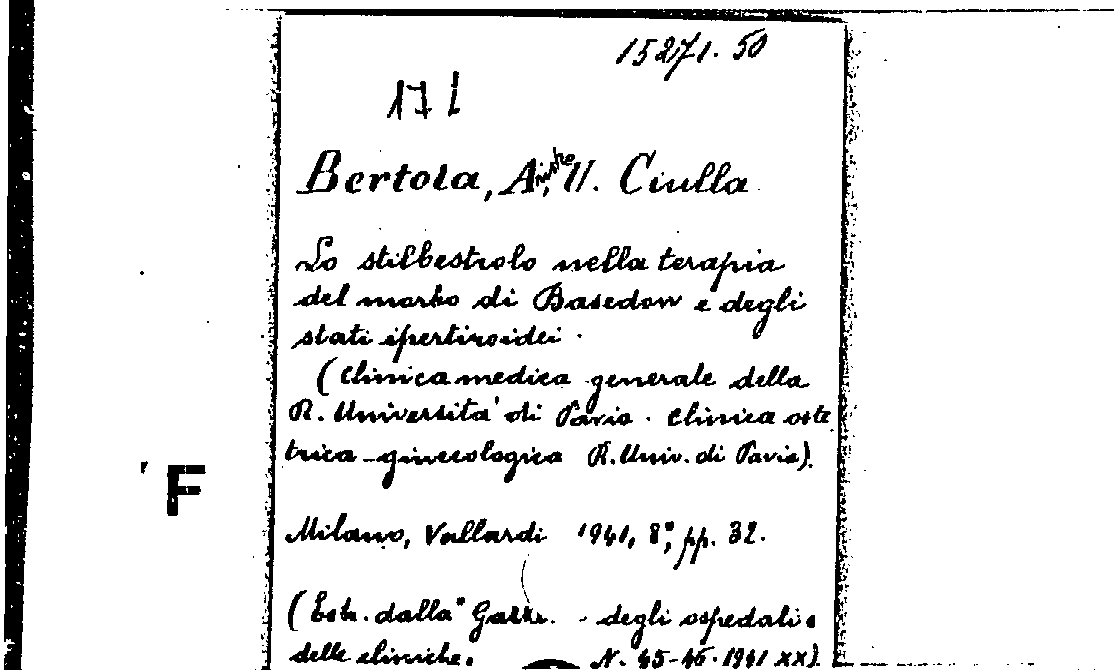 15271. 50
171
Bertola, Aristo, U. Ciulla
Lo stilbestrolo nella terapia
del morbo di Basedow e degli
stati ipertiroidei.
(Clinica medica generale della
R. Università di Pavia. Clinica oste
trica-ginecologica R. Univ. di Pavia).
F
Milano, Vallardi 1941, 8°, pp. 32.
(Estr. dalla "Gazz. - degli ospedali e
delle cliniche. N. 45-46. 1941 XX)